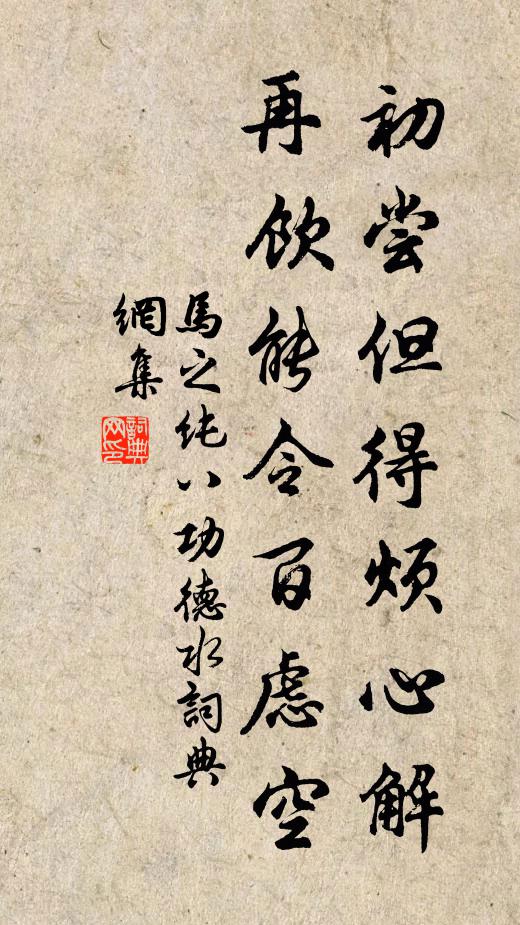 初尝但得烦心解
再饮能令百虑空
馬之纯八功德水詞典
網集
詞典网印